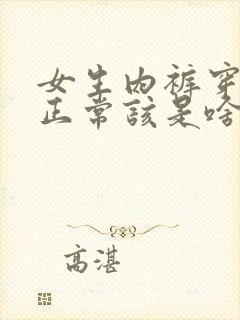 女生内裤穿
正常该是啥
高湛